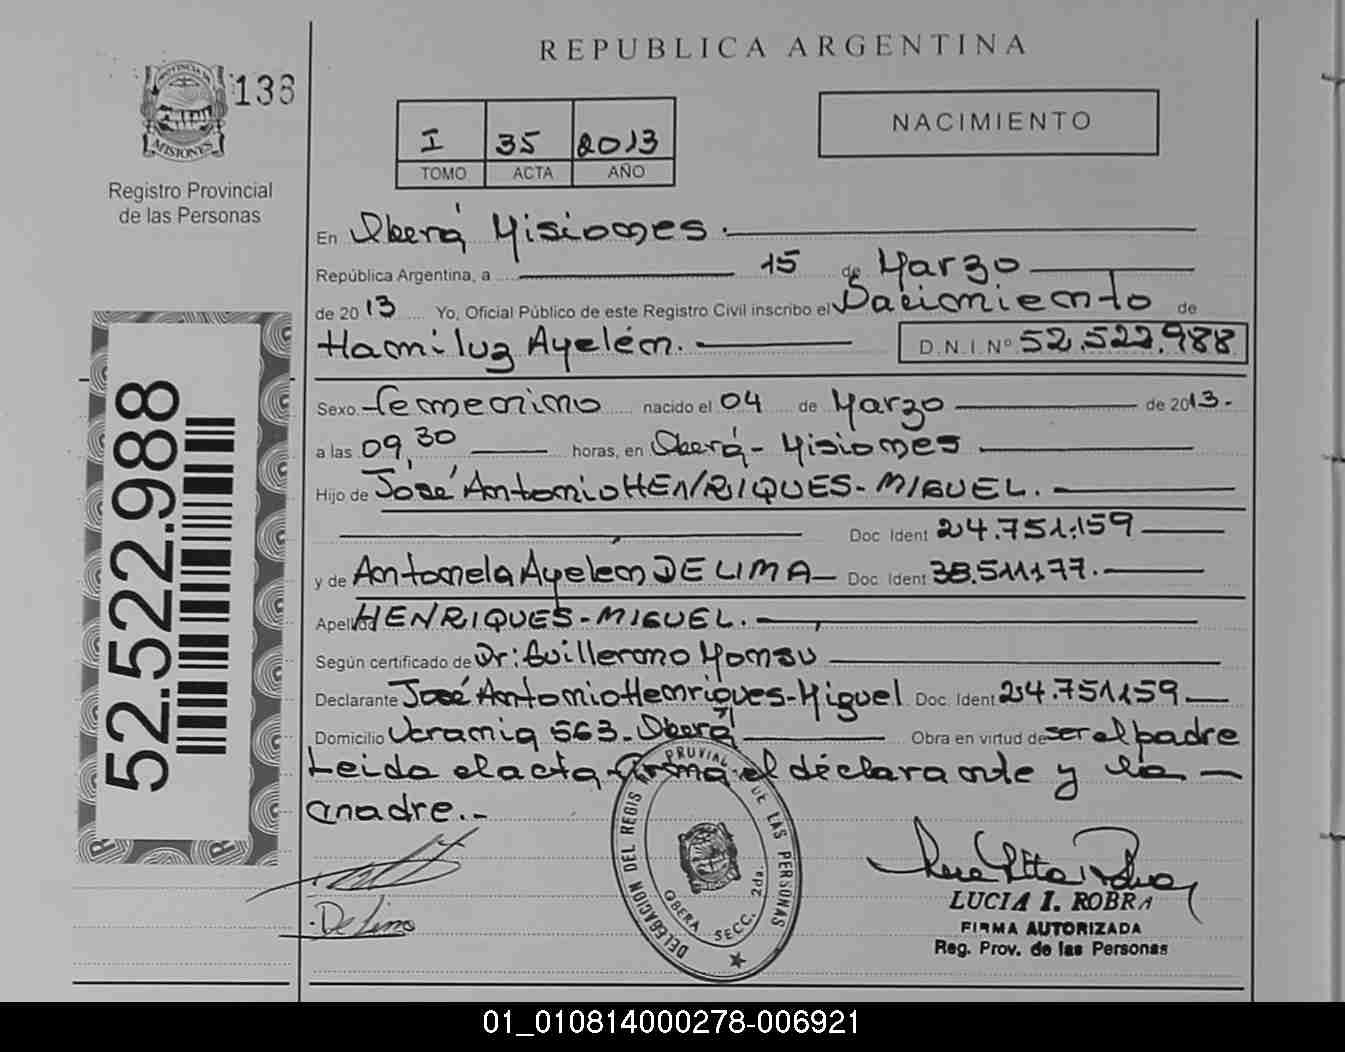 REPUBLICA ARGENTINA
136
PROVINCIA DE
MISIONES
Registro Provincial
de las Personas
I 35 2013
TOMO ACTA AÑO
NACIMIENTO
En Oberá Misiones.
República Argentina, a 15 de Marzo
de 2013 Yo, Oficial Público de este Registro Civil inscribo el Nacimiento de
Hamiluz Ayelén. D.N.I.Nº 52.522.988
Sexo femenino nacido el 04 de Marzo de 2013.
a las 09,30 horas, en Oberá - Misiones
Hijo de José Antonio HENRIQUES-MIGUEL.
Doc Ident 24.751.159
y de Antonela Ayelen DE LIMA Doc Ident 38.511.177.
Apellido HENRIQUES-MIGUEL.
Según certificado de Dr: Guillermo Monsu
Declarante José Antonio Henriques-Miguel Doc. Ident 24.751.159
Domicilio Ucrania 563. Oberá Obra en virtud de ser el padre
Leida el acta firma el declarante y la
madre.-
52.522.988
De Lima
DELEGACION DEL REGIS PROVIAL DE LAS PERSONAS
OBERA SECC. 2da.
LUCIA I. ROBRA
FIRMA AUTORIZADA
Reg. Prov. de las Personas
01_010814000278-006921